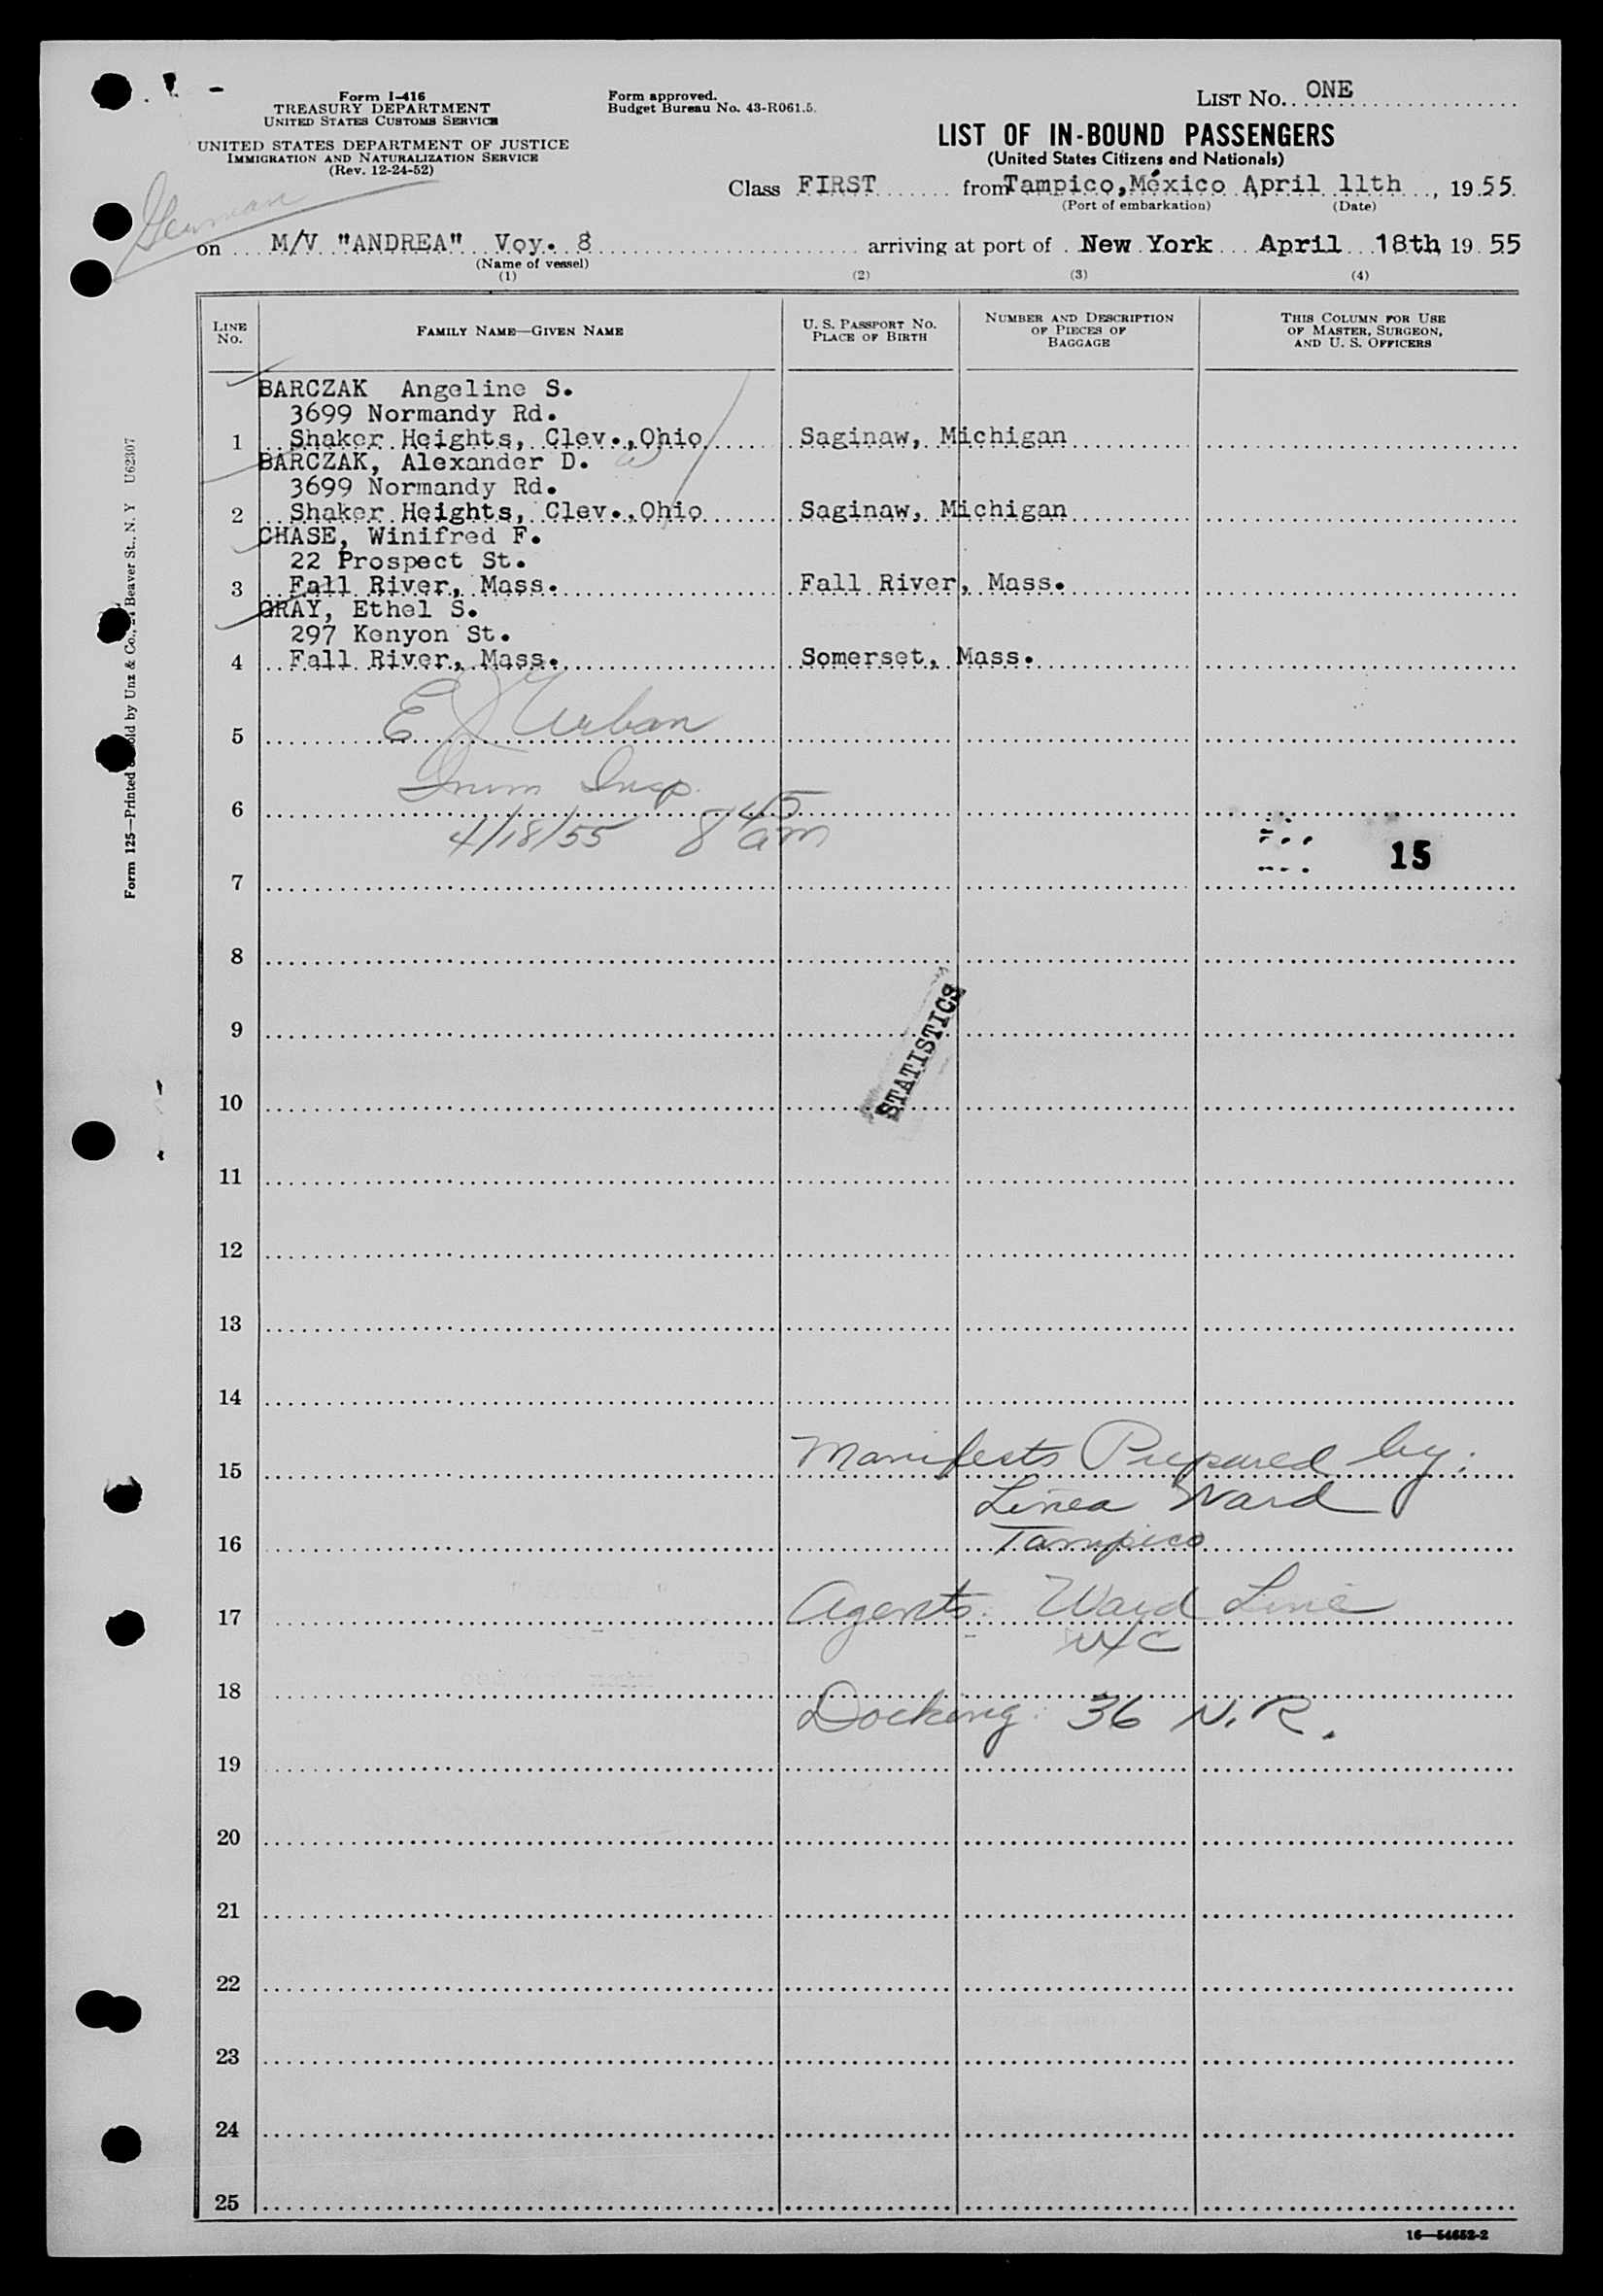 Form I-416
TREASURY DEPARTMENT
UNITED STATES CUSTOMS SERVICE
UNITED STATES DEPARTMENT OF JUSTICE
IMMIGRATION AND NATURALIZATION SERVICE
(Rev. 12-24-52)
Form approved.
Budget Bureau No. 43-R061.5.
LIST No. ONE
LIST OF IN-BOUND PASSENGERS
(United States Citizens and Nationals)
Class FIRST from Tampico, México April 11th, 1955.
(Port of embarkation) (Date)
German
on M/V "ANDREA" Voy. 8 arriving at port of New York April 18th 19 55
(Name of vessel)
(1) (2) (3) (4)
LINE No. FAMILY NAME—GIVEN NAME U. S. PASSPORT No. PLACE OF BIRTH NUMBER AND DESCRIPTION OF PIECES OF BAGGAGE THIS COLUMN FOR USE OF MASTER, SURGEON, AND U. S. OFFICERS
BARCZAK Angeline S.
3699 Normandy Rd.
1 Shaker Heights, Clev., Ohio Saginaw, Michigan
BARCZAK, Alexander D.
3699 Normandy Rd.
2 Shaker Heights, Clev., Ohio Saginaw, Michigan
CHASE, Winifred F.
22 Prospect St.
3 Fall River, Mass. Fall River, Mass.
GRAY, Ethel S.
297 Kenyon St.
4 Fall River, Mass. Somerset, Mass.
E J Urban
5
Imm Insp.
6
4/18/55 8 45 am
15
7
8
9
STATISTICS
10
11
12
13
14
Manifests Prepared by:
15
Linea Ward
16 Tampico
17 Agents: Ward Line
N/C
18
Docking: 36 N. R.
19
20
21
22
23
24
25
16—54652-2
Form 125—Printed & Sold by Unz & Co., 24 Beaver St., N. Y U62307